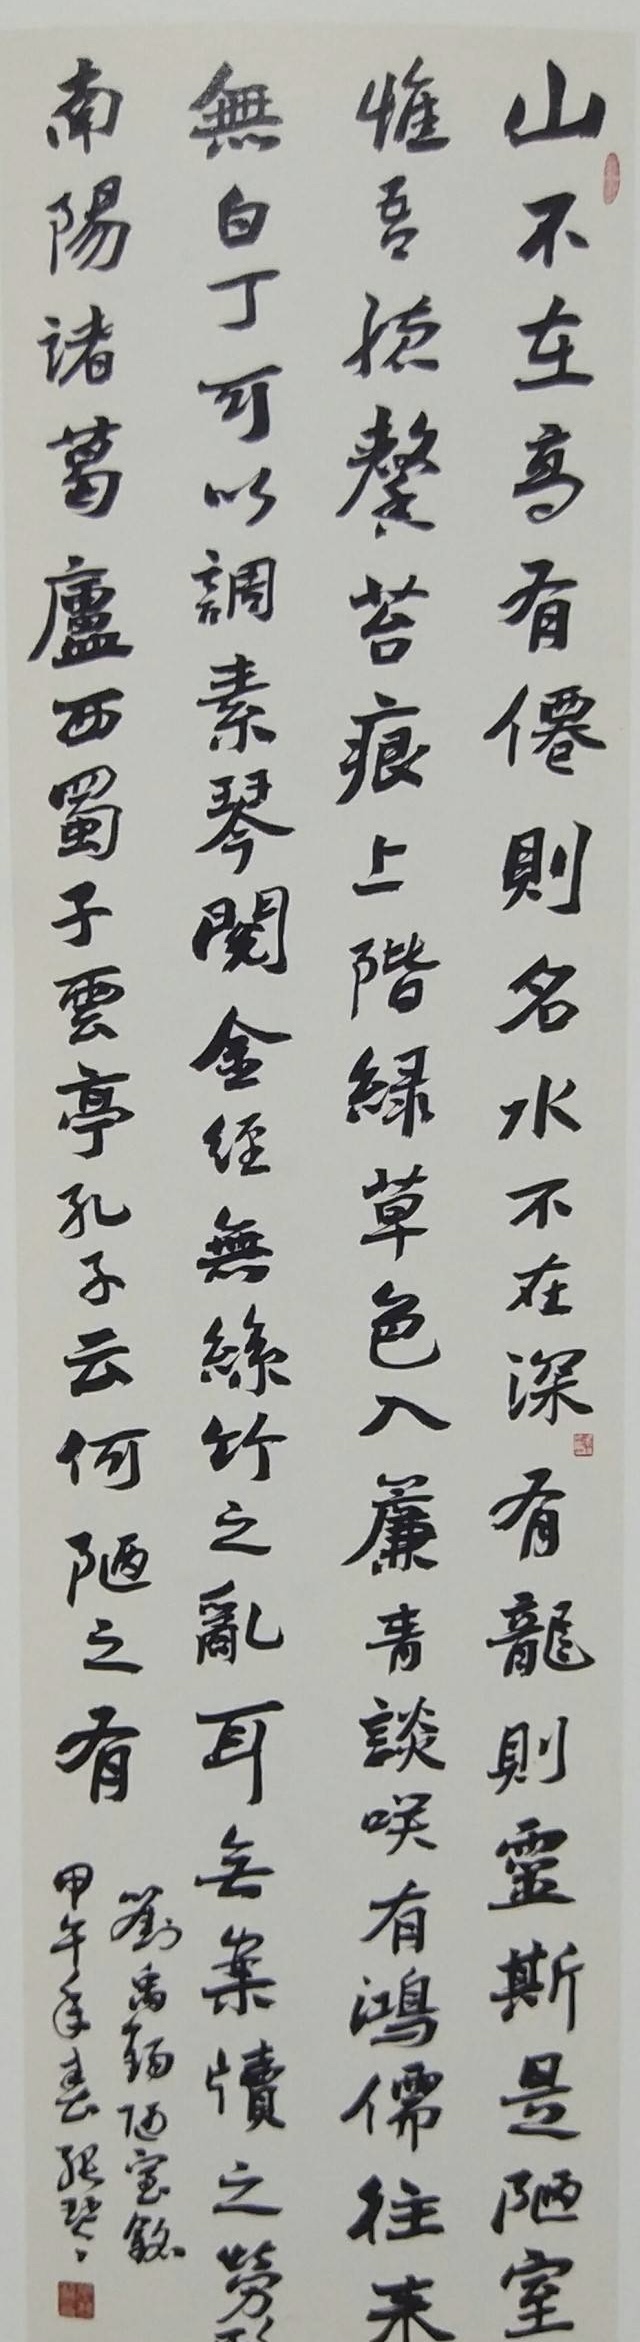 山不在高有僊則名水不在深有龍則靈斯是陋室
惟吾德馨苔痕上階緑草色入簾青談咲有鴻儒往来
無白丁可以調素琴閱金經無絲竹之亂耳無案牘之勞
南陽諸葛廬西蜀子雲亭孔子云何陋之有
劉禹錫陋室銘
甲午年春